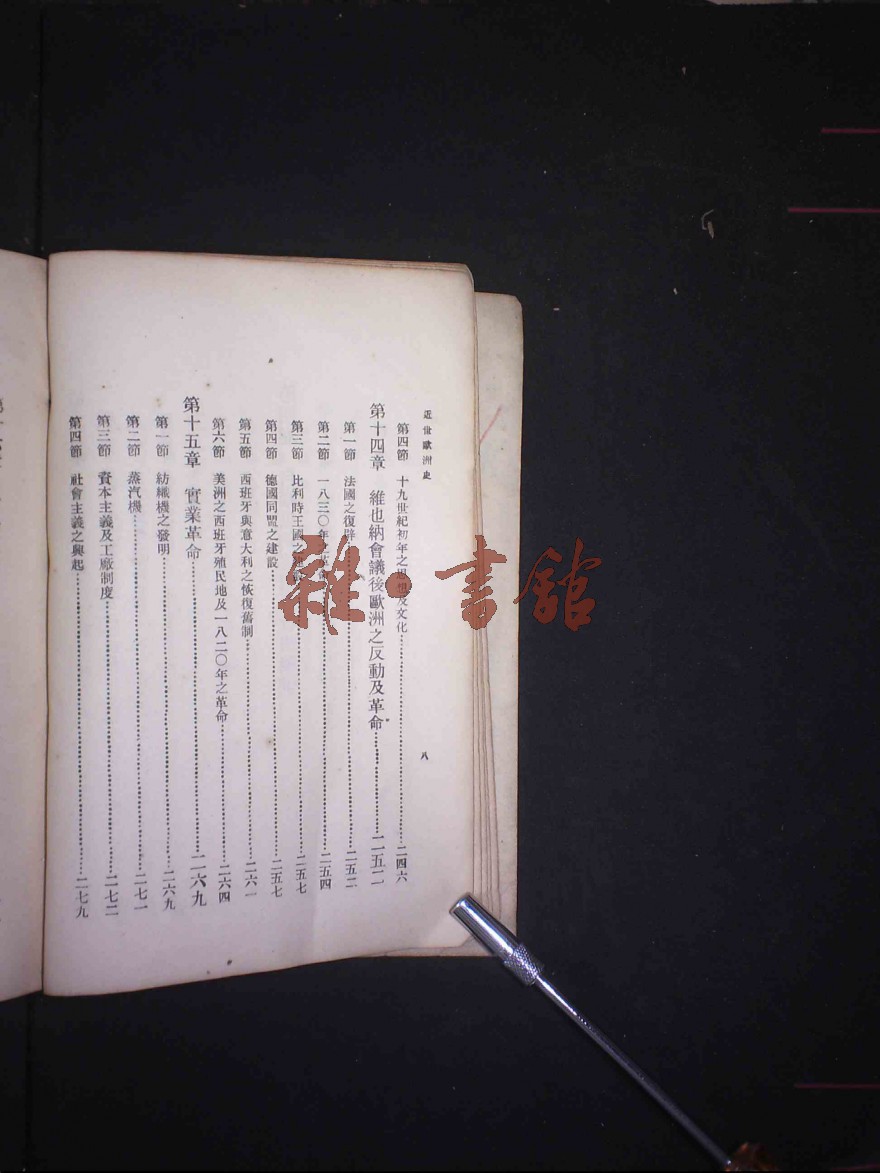 近世歐洲史
八
第四節 十九世紀初年之思想及文化 二四六
第十四章 維也納會議後歐洲之反動及革命 二五二
第一節 法國之復辟 二五二
第二節 一八三〇年之革命 二五四
第三節 比利時王國之 二五七
第四節 德國同盟之建設 二五七
第五節 西班牙與意大利之恢復舊制 二六一
第六節 美洲之西班牙殖民地及一八二〇年之革命 二六四
第十五章 實業革命 二六九
第一節 紡織機之發明 二六九
第二節 蒸汽機 二七一
第三節 資本主義及工廠制度 二七二
第四節 社會主義之興起 二七九
雜·書館